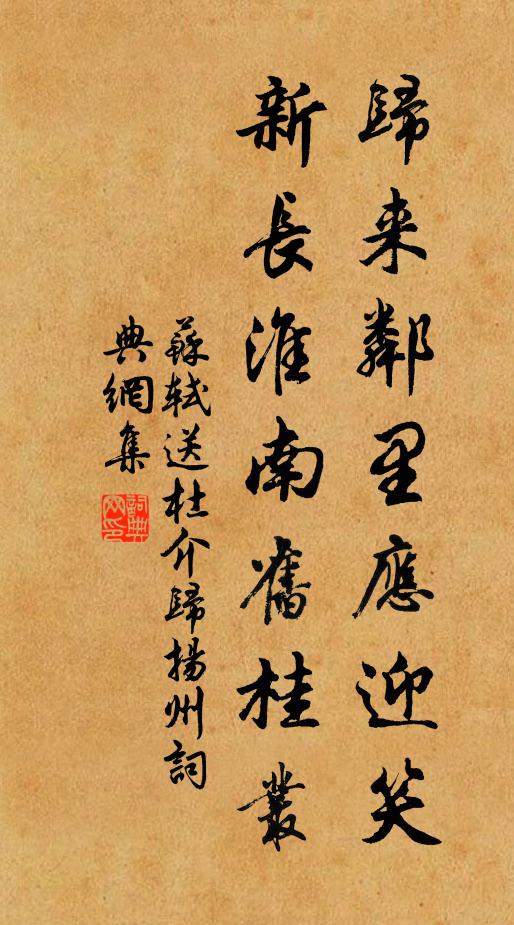 歸来鄰里應迎笑
新長淮南舊桂叢
蘇軾送杜介歸揚州詞
典網集
詞典
网印